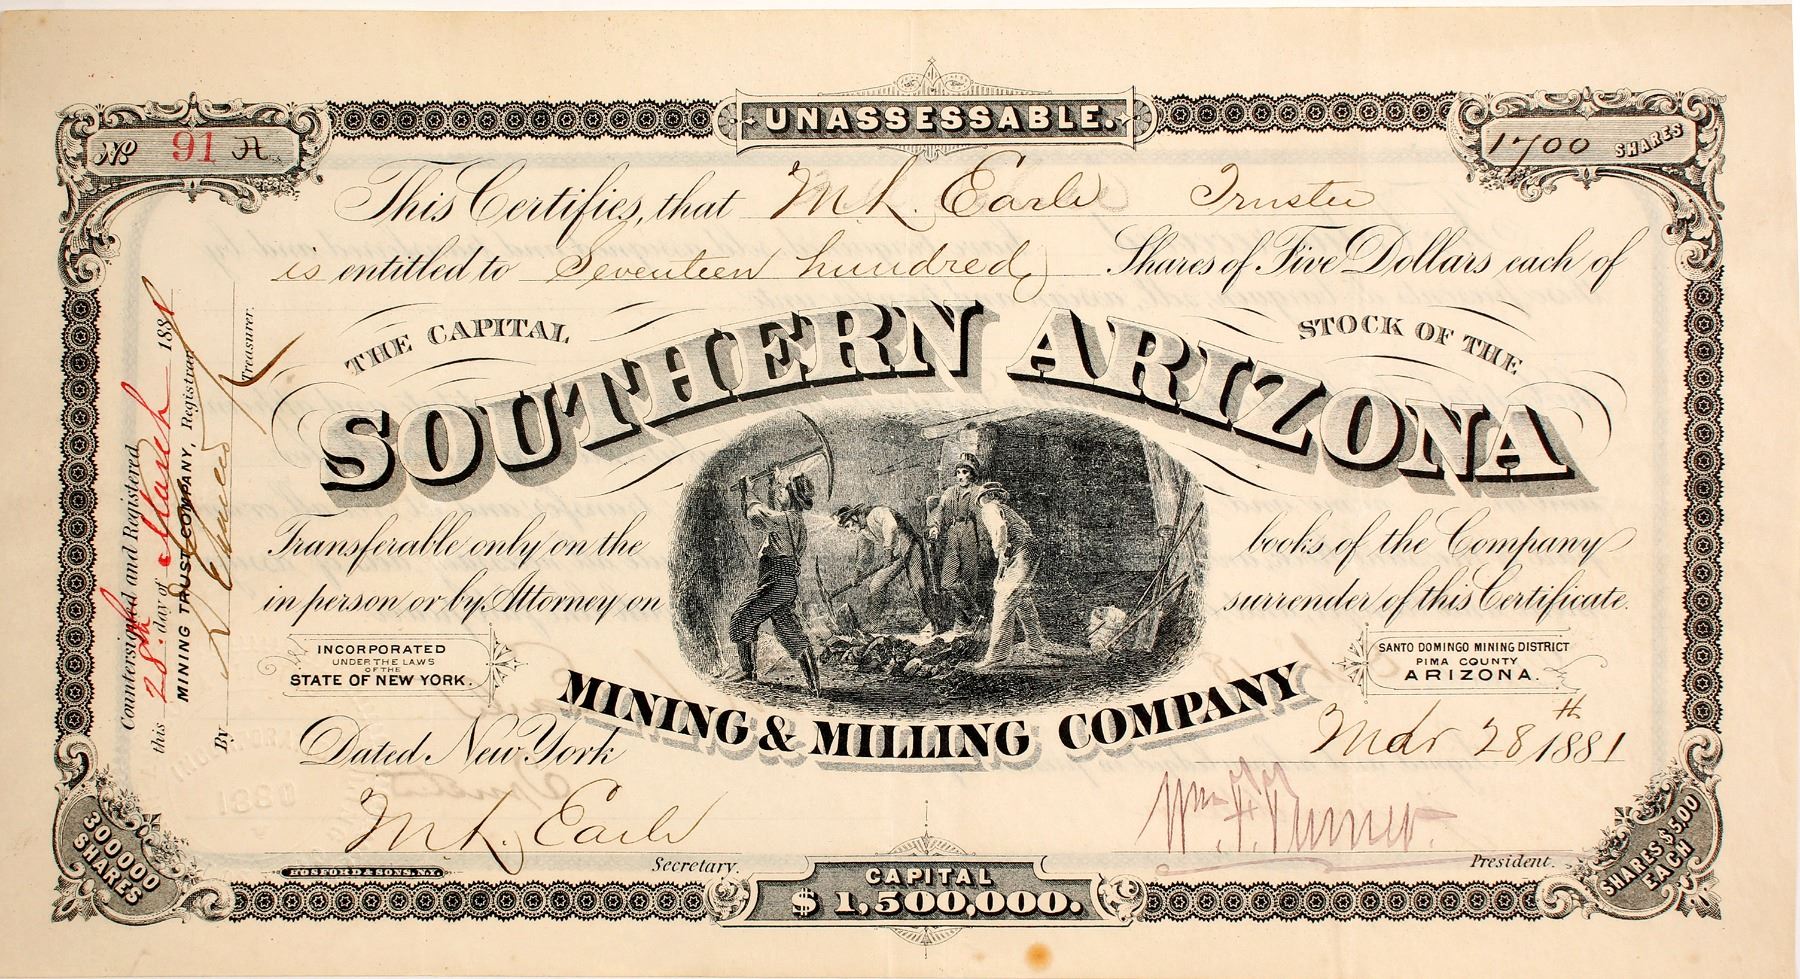 UNASSESSABLE.
No 91 A
1700 SHARES
This Certifies, that M. L. Earle Trustee
is entitled to Seventeen hundred Shares of Five Dollars each of
THE CAPITAL STOCK OF THE
SOUTHERN ARIZONA
MINING & MILLING COMPANY
Transferable only on the books of the Company
in person or by Attorney on surrender of this Certificate.
INCORPORATED
UNDER THE LAWS
OF THE
STATE OF NEW YORK.
SANTO DOMINGO MINING DISTRICT
PIMA COUNTY
ARIZONA.
Dated New York Mar 28th 1881
M. L. Earle
Secretary.
Wm. F.
President.
HOSFORD & SONS, N.Y.
300000
SHARES
CAPITAL
$1,500,000.
SHARES $5,00
EACH
Countersigned and Registered
this 28th day of March 1881
MINING TRUST COMPANY, Registrar
By Treasurer.
1880